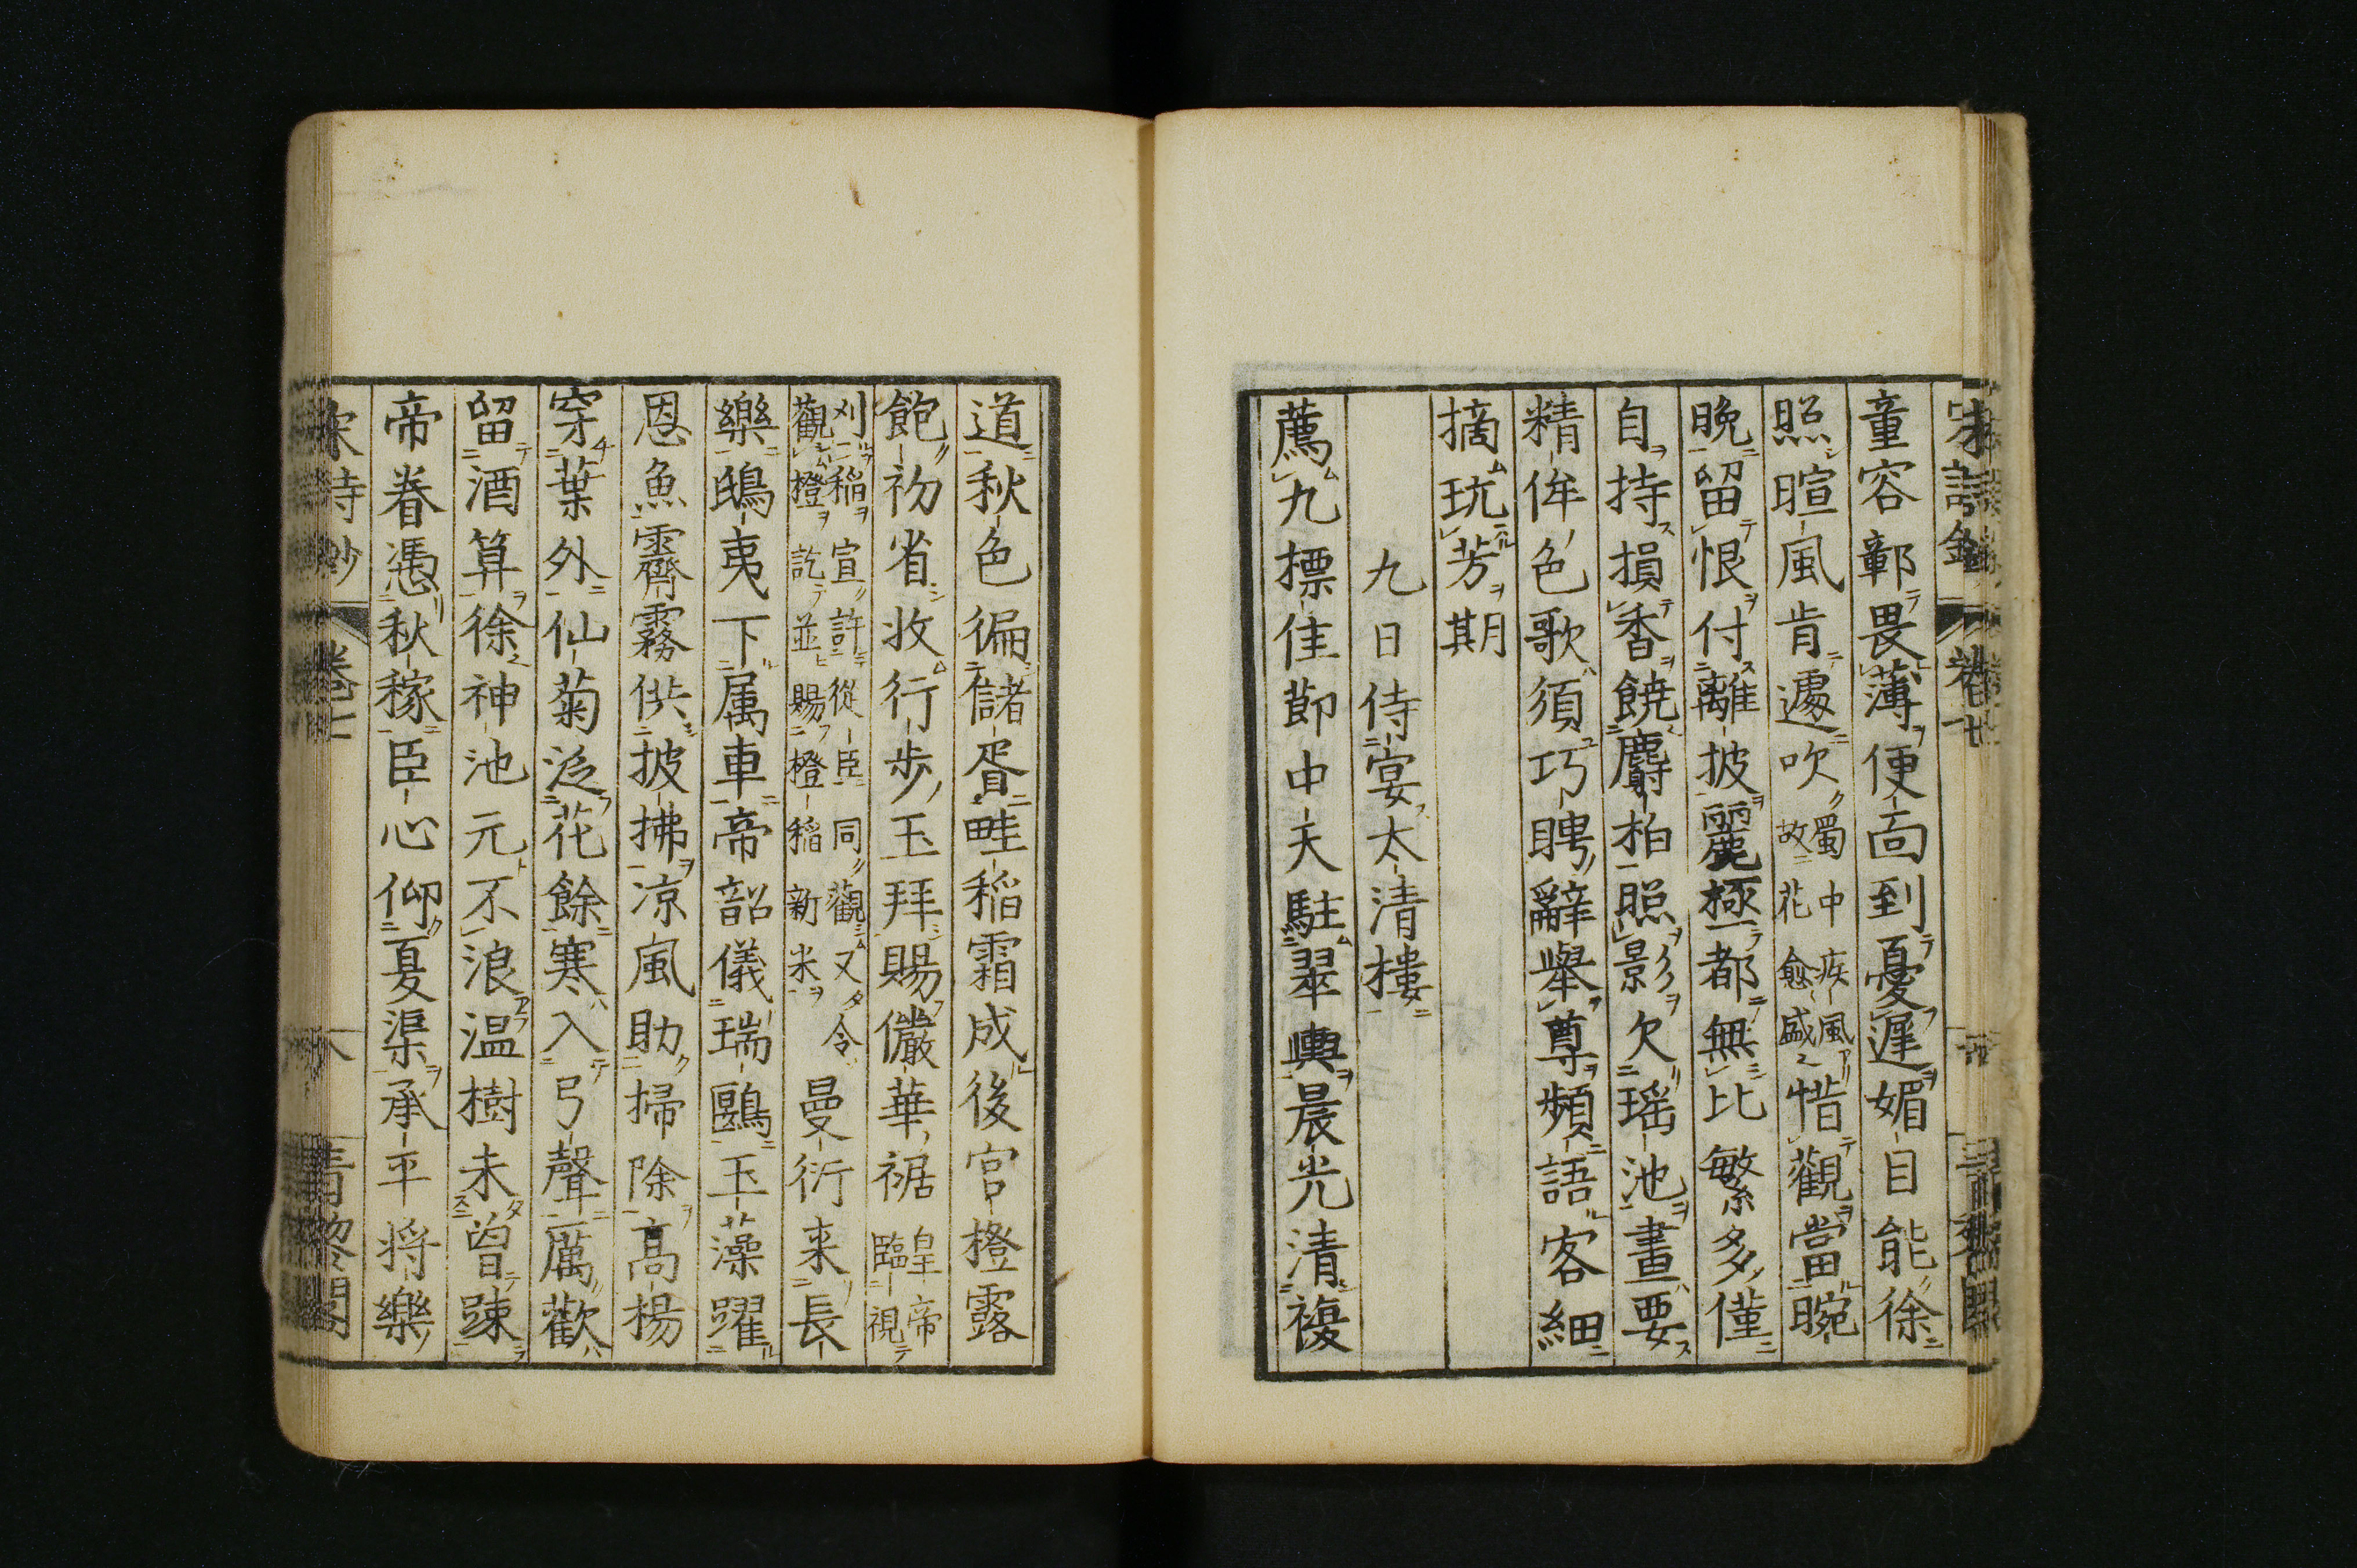 童容鄣畏薄便面到憂遲媚目能徐
照暄風肯遽吹蜀中疾風故花愈盛惜觀當腕
晚留恨付離披麗極都無比繁多僅
自持損香饒麝柏照影欠瑤池畫要
精侔色歌須巧聘辭舉尊頻語客細
摘玩芳期
九日侍宴太清樓
薦九標佳節中天駐翠輿晨光清複
道秋色徧儲胥畦稻霜成後宮橙露
飽初省收行步玉拜賜儼華裾皇帝臨視
刈稲宣許從臣同觀又令觀橙訖並賜橙稲新米曼衍来長
樂鴟夷下属車帝韶儀瑞鷗玉藻躍
恩魚霽霧供披拂凉風助掃除高楊
穿葉外仙菊泛花餘寒入弓聲厲歡
留酒算徐神池元不浪温樹未曾踈
帝眷憑秋稼臣心仰夏渠承平将樂
宋詩鈔 卷 六 青黎閣